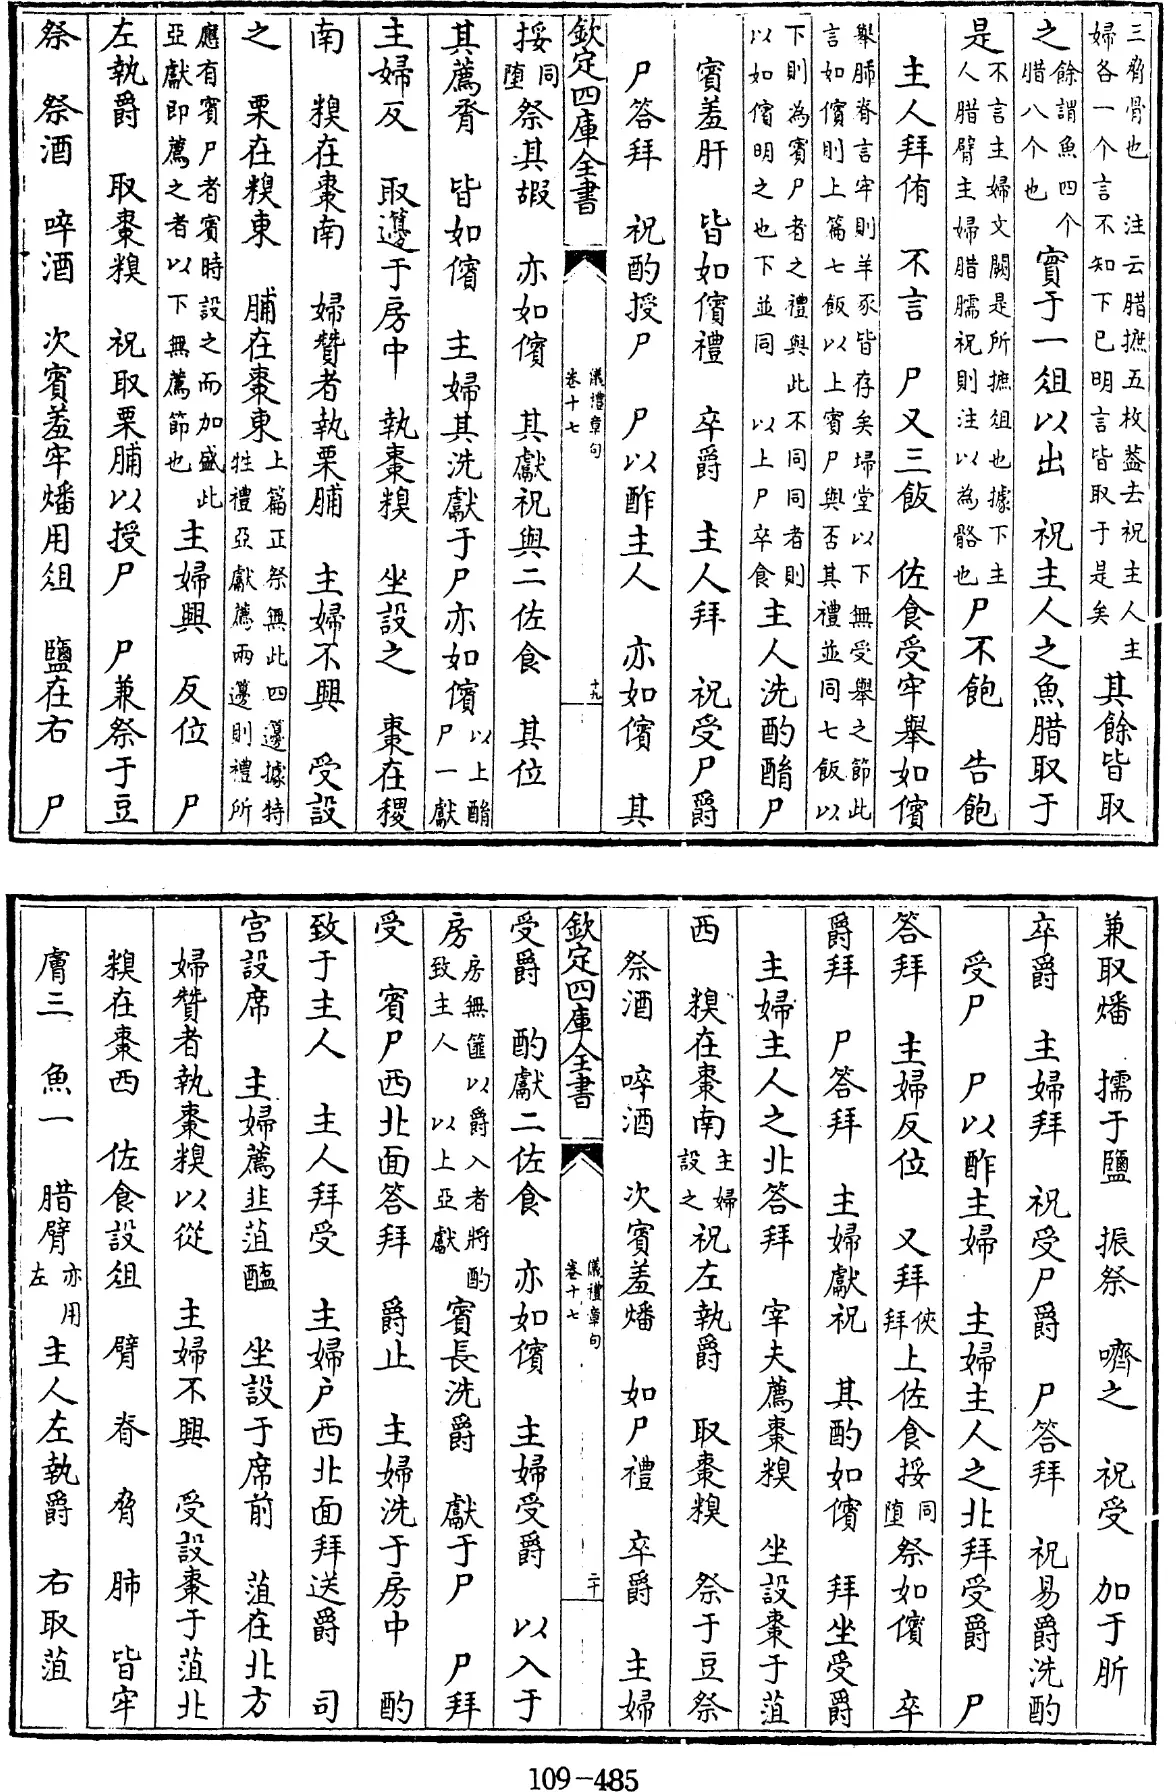 三脅骨也　注云腊摭五枚蓋去祝主人主
婦各一个言不知下已明言皆取于是矣　其餘皆取
之餘謂魚四个
腊八个也　實于一俎以出　祝主人之魚腊取于
是不言主婦文闕是所摭俎也據下主
人腊臂主婦腊臑祝則注以為骼也　尸不飽　告飽
主人拜侑　不言　尸又三飯　佐食受牢舉如儐
舉肺脊言牢則羊豕皆存矣埽堂以下無受舉之節此
言如儐則上篇七飯以上賓尸與否其禮並同七飯以
下則為賓尸者之禮與此不同同者則
以如儐明之也下並同　以上尸卒食　主人洗酌酳尸
賓羞肝　皆如儐禮　卒爵　主人拜　祝受尸爵
尸答拜　祝酌授尸　尸以酢主人　亦如儐　其
欽定四庫全書　儀禮章句
卷十七　十九
挼同
墮祭其嘏　亦如儐　其獻祝與二佐食　其位
其薦脀　皆如儐　主婦其洗獻于尸亦如儐以上酳
尸一獻
主婦反　取籩于房中　執棗糗　坐設之　棗在稷
南　糗在棗南　婦贊者執栗脯　主婦不興　受設
之　栗在糗東　脯在棗東上篇正祭無此四籩據特
牲禮亞獻薦兩籩則禮所
應有賓尸者賓時設之而加盛此
亞獻即薦之者以下無薦節也　主婦興　反位　尸
左執爵　取棗糗　祝取栗脯以授尸　尸兼祭于豆
祭　祭酒　啐酒　次賓羞牢燔用俎　鹽在右　尸
兼取燔　擩于鹽　振祭　嚌之　祝受　加于肵
卒爵　主婦拜　祝受尸爵　尸答拜　祝易爵洗酌
受尸　尸以酢主婦　主婦主人之北拜受爵　尸
答拜　主婦反位　又拜俠
拜上佐食挼同
墮祭如儐　卒
爵拜　尸答拜　主婦獻祝　其酌如儐　拜坐受爵
主婦主人之北答拜　宰夫薦棗糗　坐設棗于菹
西　糗在棗南主婦
設之祝左執爵　取棗糗　祭于豆祭
祭酒　啐酒　次賓羞燔　如尸禮　卒爵　主婦
欽定四庫全書　儀禮章句
卷十七　二十
受爵　酌獻二佐食　亦如儐　主婦受爵　以入于
房房無篚以爵入者將酌
致主人　以上亞獻　賓長洗爵　獻于尸　尸拜
受　賓尸西北面答拜　爵止　主婦洗于房中　酌
致于主人　主人拜受　主婦户西北面拜送爵　司
宫設席　主婦薦韭菹醢　坐設于席前　菹在北方
婦贊者執棗糗以從　主婦不興　受設棗于菹北
糗在棗西　佐食設俎　臂　脊　脅　肺　皆牢
膚三　魚一　腊臂亦用
左　主人左執爵　右取菹
109-485